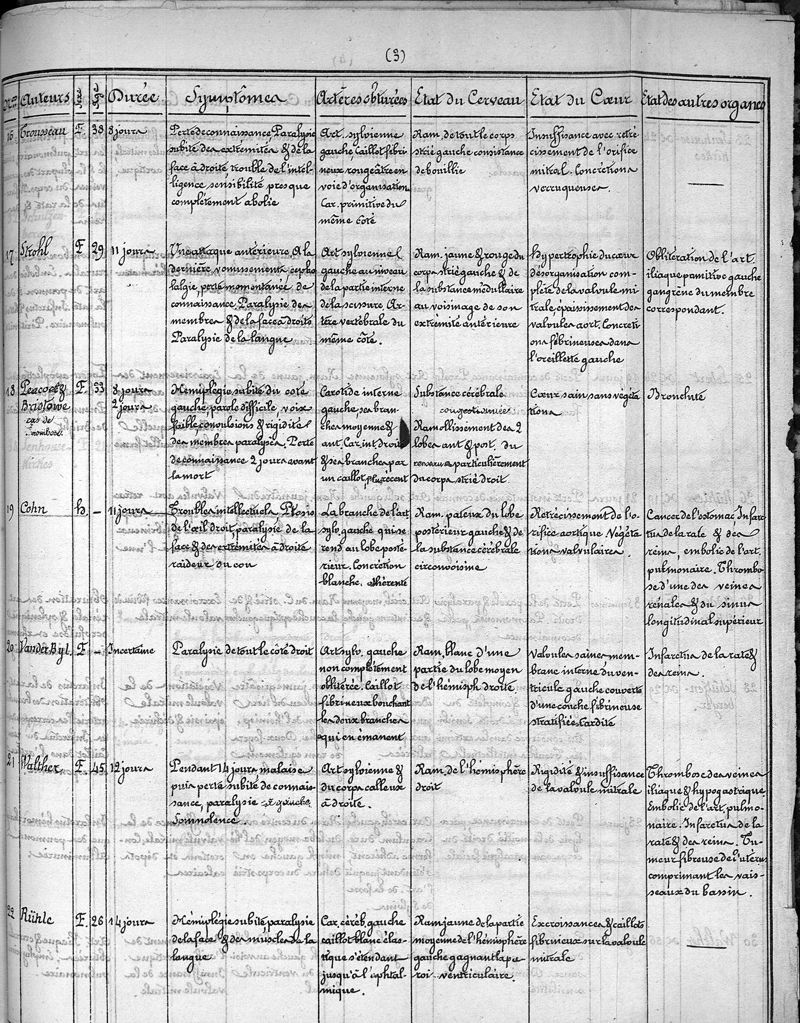 (3)
Nos Auteurs Durée Symptômes Artères obturées Etat du Cerveau Etat du Cœur Etat des autres organes
16 Trousseau F. 39 8 jours
Perte de connaissance, Paralysie
subite des extremités & de la
face à droite trouble de l'intel-
ligence sensibilité presque
complètement abolie
Art. sylvienne
gauche, Caillot fibri-
neux rougeâtre en
voie d'organisation
Car. primitive du
même côté
Ram. de tout le corps
strié gauche consistance
de bouillie
Insuffisance avec rétré-
cissement de l'orifice
mitral. Concrétions
verruqueuses.
17 Strohl F 29 11 jours
Une attaque antérieure. A la
dernière, vomissements cepha-
lalgie, perte momentanée de
connaissance. Paralysie des
membres & de la face à droite
Paralysie de la langue
Art sylvienne
gauche au niveau
de la partie interne
de la scissure. Ar-
tère vertébrale du
même côté.
Ram. jaune & rouge du
corps strié gauche & de
la substance médullaire
au voisinage de son
extrémité antérieure
Hypertrophie du cœur
Désorganisation com-
plète de la valvule mi-
trale épaississement des
valvules aort. Concreti-
ons fibrineuses dans
l'oreillette gauche
Oblitération de l'art.
iliaque primitive gauche
gangrène du membre
correspondant.
18 Peacock & F. 33 8 jours
Bristowe 2 jours
cas de
thrombose.
Hémiplégie subite du coté
gauche, parole difficile, voix
faible convulsions & rigidité
des membres paralysés. Perte
de connaissance 2 jours avant
la mort
Carotide interne
gauche ses bran-
ches moyenne &
ant. Car. int. droite
& ses branches par
un caillot plus récent
Substance cérébrale
congestionnée
Ramollissement des 2
lobes ant & post. du
cerveau particulièrement
du corps strié droit.
Cœur sain sans végéta
tions
Bronchite
19 Cohn h. - 11 jours
Troubles intellectuels Ptosis
de l'œil droit, paralysie de la
face & des extrémités à droite
raideur du cou
La branche de l'art
sylv. gauche qui se
rend au lobe posté-
rieur. Concrétion
blanche, adhérente
Ram. pateux du lobe
postérieur gauche & de
la substance cérébrale
circonvoisine
Retrécissement de l'o-
rifice aortique Végéta
tions valvulaires.
Cancer de l'estomac, Infarc-
tus de la rate & des
reins, embolie de l'art.
pulmonaire. Thrombo-
se d'une des veines
rénales & du sinus
longitudinal supérieur
20 Vander Byl. F - Incertaine
Paralysie de tout le côté droit
Art sylv. gauche
non complètement
oblitérée. Caillot
fibrineux bouchant
les doux branches
qui en émanent
Ram. blanc d'une
partie du lobe moyen
de l'hémisph. droite.
Valvules saines mem-
brane interne du ven-
tricule gauche couverte
d'une couche fibrineuse
stratifiée. Cardite
Infarctus de la rate &
des reins.
21 Walther. F. 45 12 jours
Pendant 14 jours malaise
puis perte subite de connais-
sance, paralysie à gauche
Somnolence.
Art sylvienne &
du corps calleux
à droite.
Ram. de l'hémisphère
droit
Rigidité & insuffisance
de la valvule mitrale
Thrombose des veines
iliaque & hypogastrique
Embolie de l'art. pulmo-
naire. Infarctus de la
rate & des reins. Tu-
meur fibreuse de l'utérus
comprimant les vais-
seaux du bassin.
22 Rühle F. 26 14 jours
Hémiplégie subite, paralysie
de la face & des muscles de la
langue
Car. céréb. gauche
caillot blanc élas-
tique s'étendant
jusqu'à l'ophtal-
mique.
Ram jaune de la partie
moyenne de l'hémisphère
gauche gagnant la pa
roi ventriculaire.
Excroissances & caillots
fibrineux sur la valvule
mitrale